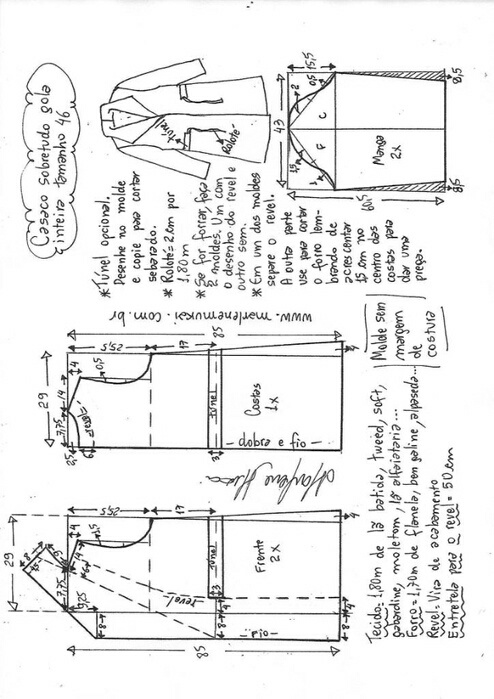 Casaco sobretudo gola
inteira tamanho 46
túnel
Roloté
*Túnel opcional.
Desenhe no molde
e copie para cortar
separado.
*Roloté= 2cm por
1,80m
*Se for forrar, faça
2 moldes. Um com
o desenho do revel e
outro sem.
*Em um dos moldes
separe o revel.
A outra parte
use para cortar
o forro lem-
brando de
acrescentar
15 cm no
centro das
costas para
dar uma
prega.
15,5
0,5
2
43
C
F
1,5
1
Manga
2x
60,5
8,5
8,5
www.marlenemukai.com.br
29
7,75
14
4
2,5
6
revel
0,5
25,5
17
85
túnel
3
Costas
1x
dobra e fio
29
8
7,75
14
4
9,25
1,5
25,5
17
revel
túnel
3
4
4
Frente
2x
8
8
fio
85
Marlene Mukai
Tecido= 1,80m de lã batida, tweed, soft,
gabardine, moletom, lã alfaiataria...
Forro= 1,70m de flanela, bengaline, alpaseda...
Revel= Vira de acabamento
Entretela para o revel= 50cm
Molde sem
margem
de
costura